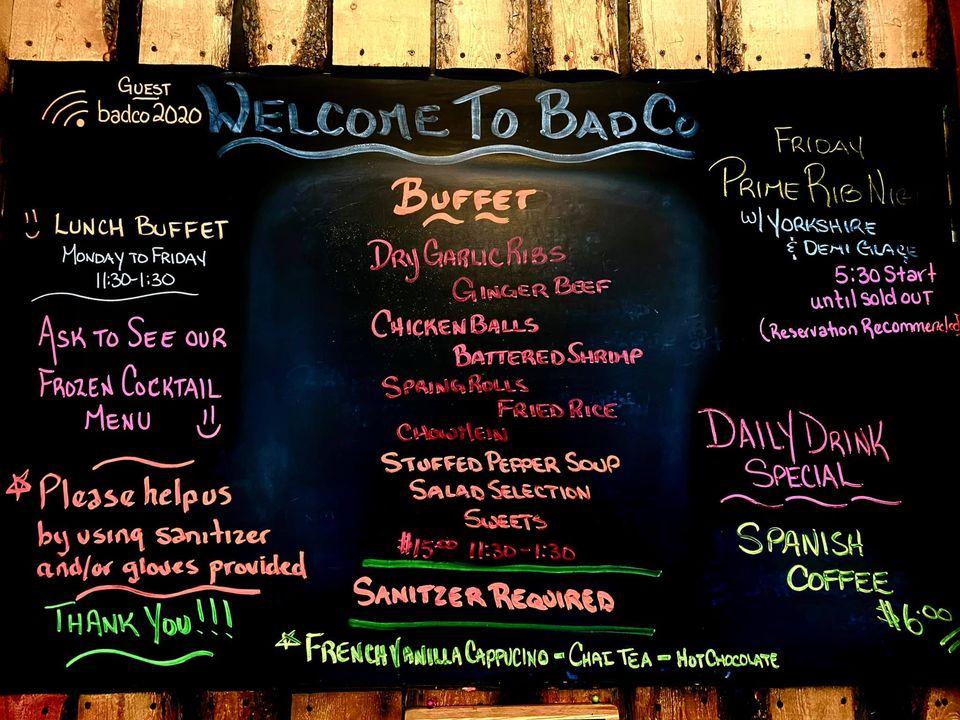 GUEST
badco2020
WELCOME TO BADCO
LUNCH BUFFET
MONDAY TO FRIDAY
11:30-1:30
ASK TO SEE OUR
FROZEN COCKTAIL
MENU
Please help us
by using sanitizer
and/or gloves provided
THANK YOU!!!
BUFFET
DRY GARLIC RIBS
GINGER BEEF
CHICKEN BALLS
BATTERED SHRIMP
SPRING ROLLS
FRIED RICE
CHOWMEIN
STUFFED PEPPER SOUP
SALAD SELECTION
SWEETS
$15.00 11:30-1:30
SANITZER REQUIRED
FRENCH VANILLA CAPPUCINO - CHAI TEA - HOT CHOCOLATE
FRIDAY
PRIME RIB
W/ YORKSHIRE
& DEMI GLACE
5:30 Start
until sold out
(Reservation Recommended)
DAILY DRINK
SPECIAL
SPANISH
COFFEE
$6.00